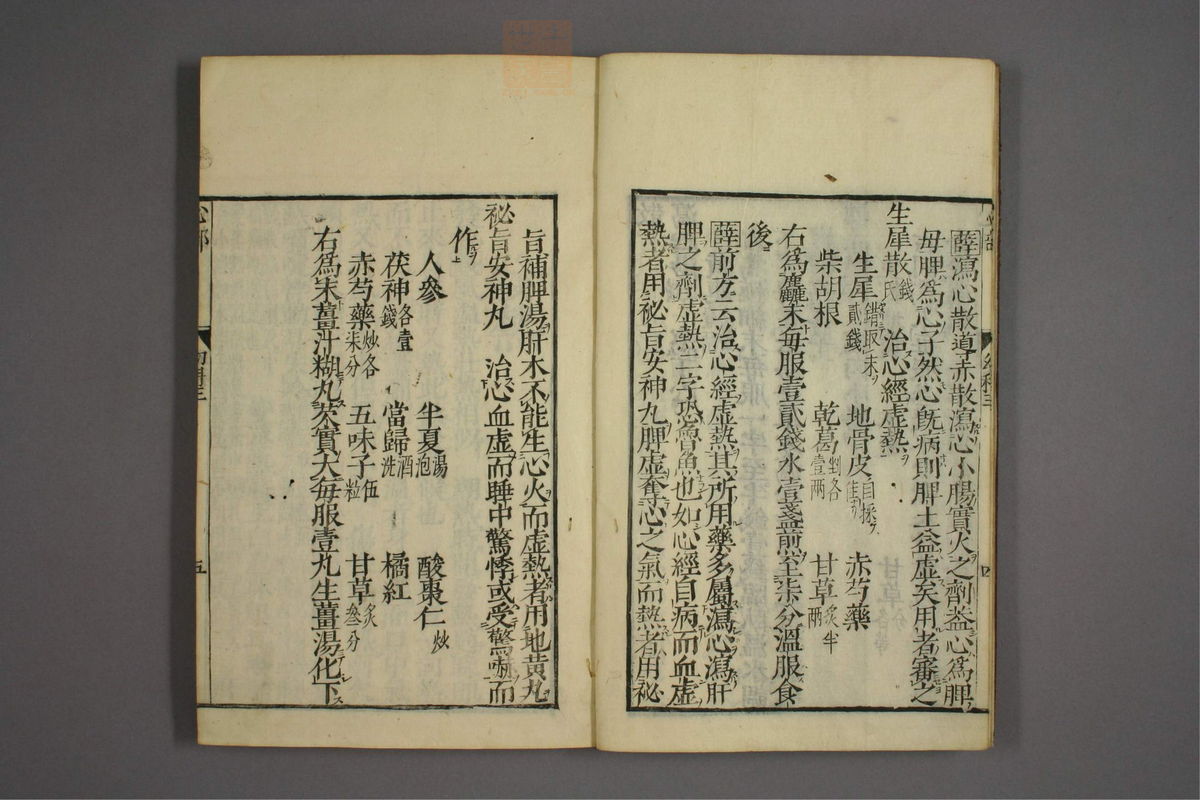 薛瀉心散導赤散瀉心小腸實火之劑盖心爲脾
母脾爲心子然心旣病則脾土益虛矣用者審之
生犀散錢氏 治心經虛熱
生犀錯取末貳錢 地骨皮自採佳 赤芍藥
柴胡根 乾葛剉各壹兩 甘草炙半兩
右爲麤末每服壹貳錢水壹盞煎至柒分溫服食
後
薛前方云治心經虛熱其所用藥多屬瀉心瀉肝
脾之劑虛熱二字恐魯魚也如心經自病而血虛
熱者用祕旨安神丸脾虛奪心之氣而熱者用祕
心部
幼科三
五
旨補脾湯肝木不能生心火而虛熱者用地黄丸
祕旨安神丸 治心血虛而睡中驚悸或受驚嚇而
作
人參 半夏湯泡 酸棗仁炒
茯神各壹錢 當歸酒洗 橘紅
赤芍藥炒各柒分 五味子伍粒 甘草炙叄分
右爲末薑汁糊丸芡實大每服壹丸生薑湯化下